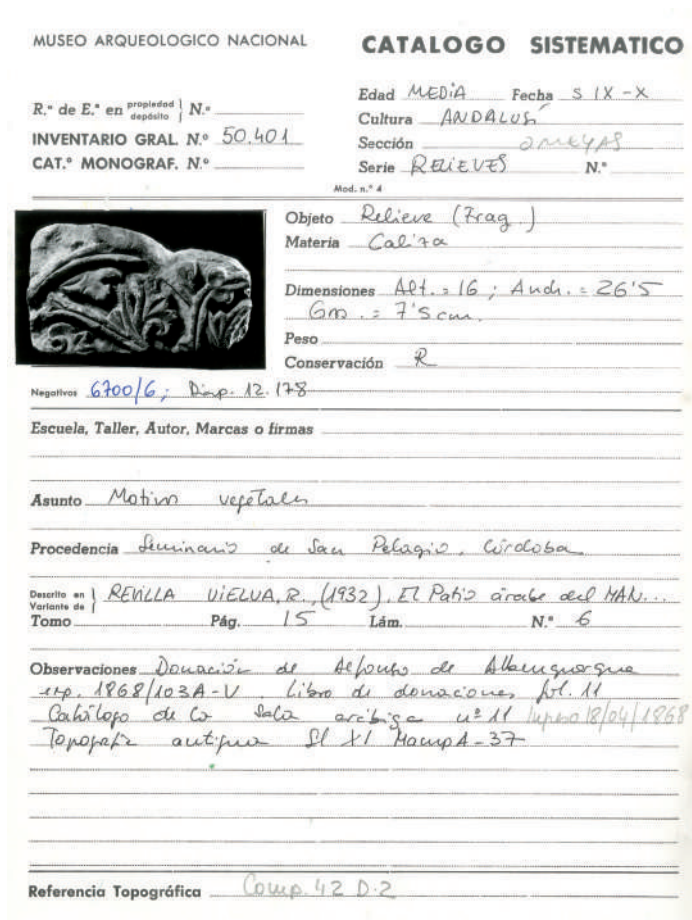 MUSEO ARQUEOLOGICO NACIONAL
CATALOGO SISTEMATICO
R.º de E.º en propiedad depósito } N.º
INVENTARIO GRAL. N.º 50.401
CAT.º MONOGRAF. N.º
Edad MEDIA Fecha S IX-X
Cultura ANDALUSÍ
Sección OMEYAS
Serie RELIEVES N.º
Mod. n.º 4
Objeto Relieve (Frag.)
Materia Caliza
Dimensiones Alt. = 16 ; Anch. = 26'5
Gro. = 7'5 cm.
Peso
Conservación R
Negativos 6700/6; Diap. 12.178
Escuela, Taller, Autor, Marcas o firmas
Asunto Motivos vegetales
Procedencia Seminario de San Pelagio, Córdoba
Descrito en Variante de } REVILLA VIELVA, R., (1932), El Patio árabe del MAN...
Tomo Pág. 15 Lám. N.º 6
Observaciones Donación de Alfonso de Alburquerque
exp. 1868/103A-V. Libro de donaciones fol. 11
Catálogo de la Sala arábiga nº 11 Ingreso 18/04/1868
Topografía antigua Sl XI MampA-37
Referencia Topográfica Comp. 42 D-2